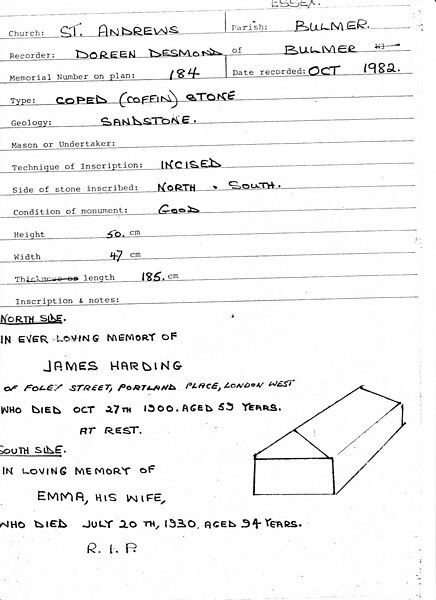 ESSEX.
Church: ST. ANDREWS Parish: BULMER.
Recorder: DOREEN DESMOND of BULMER
Memorial Number on plan: 184 Date recorded: OCT 1982.
Type: COPED (COFFIN) STONE
Geology: SANDSTONE.
Mason or Undertaker:
Technique of Inscription: INCISED
Side of stone inscribed: NORTH . SOUTH.
Condition of monument: GOOD
Height 50. cm
Width 47 cm
Thickness or length 185. cm
Inscription & notes:
NORTH SIDE.
IN EVER LOVING MEMORY OF
JAMES HARDING
OF FOLEY STREET, PORTLAND PLACE, LONDON WEST
WHO DIED OCT 27TH 1900. AGED 59 YEARS.
AT REST.
SOUTH SIDE.
IN LOVING MEMORY OF
EMMA, HIS WIFE,
WHO DIED JULY 20TH, 1930, AGED 94 YEARS.
R. I. P.